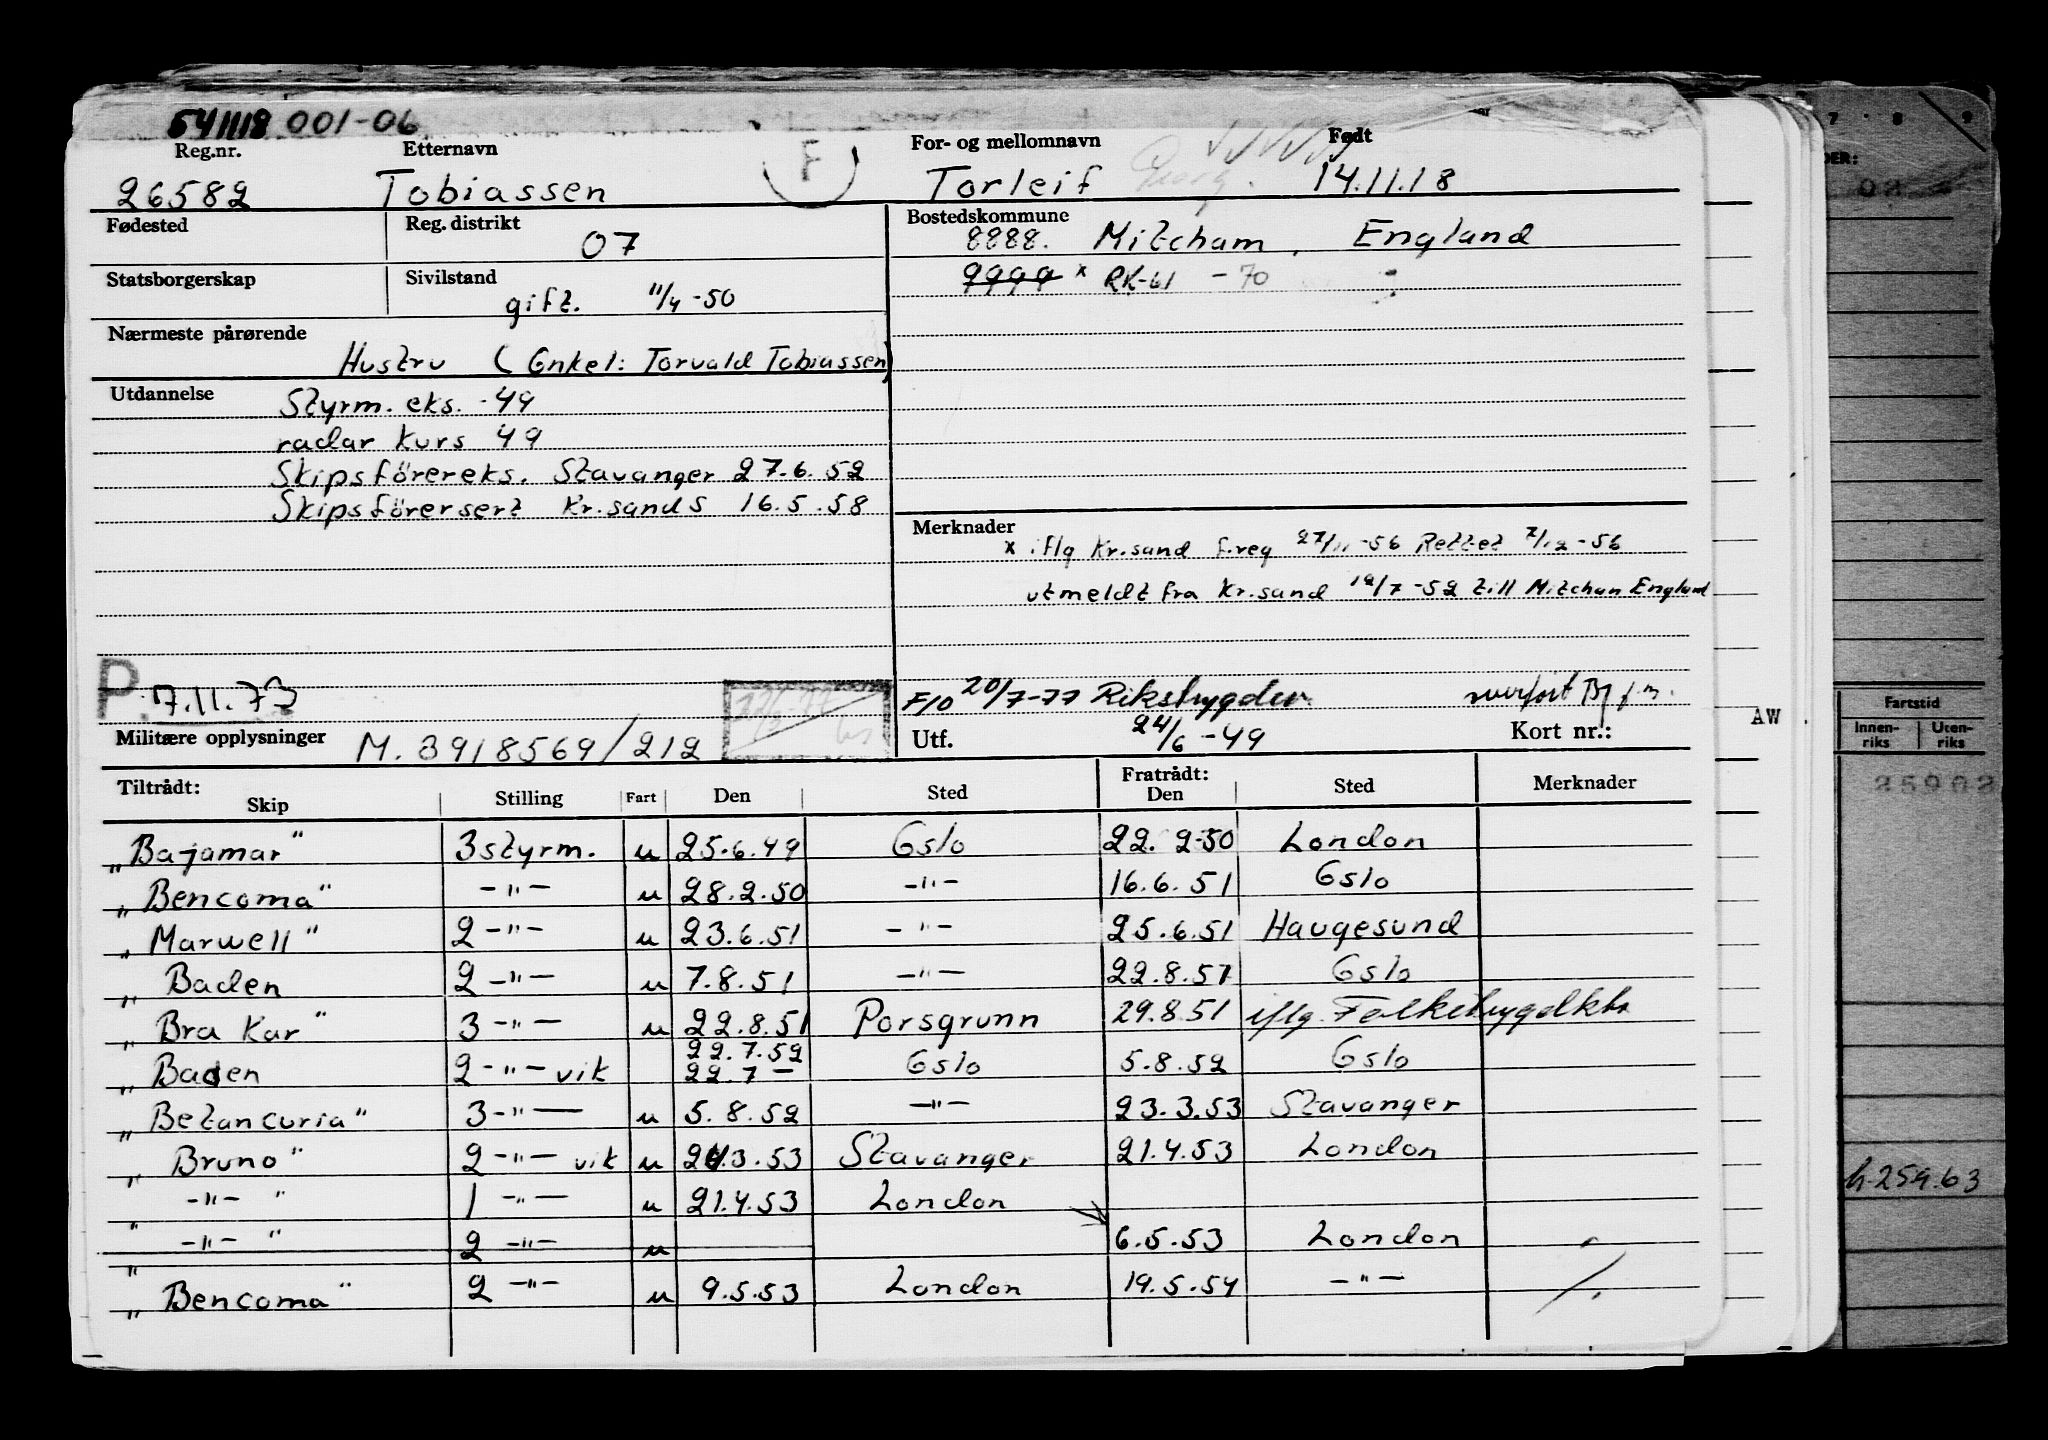 541118 001-06
Reg.nr. Etternavn For- og mellomnavn Født
26582 Tobiassen F Torleif Georg. 14.11.18
Fødested Reg. distrikt 07 Bostedskommune 8888. Mitcham, England
Statsborgerskap Sivilstand gift. 11/4-50 9999 x RK-61 -70
Nærmeste pårørende
Hustru (Onkel: Torvald Tobiassen)
Utdannelse Styrm. eks. -49
radar kurs 49
Skipsförereks. Stavanger 27.6.52
Skipsförersert Kr.sand S 16.5.58
Merknader
x iflg Kr.sand f.reg 27/11-56 Rettet 7/12-56
utmeldt fra Kr.sand 12/7-52 till Mitchan England
P. 7.11.73
F/O 20/7-77 Riksbygden
Militære opplysninger M. 3918569/212
Utf. 24/6-49 Kort nr.:
Tiltrådt: Skip Stilling Fart Den Sted Fratrådt: Den Sted Merknader
„Bajamar" 3 styrm. u 25.6.49 Oslo 22.2-50 London
„Bencoma" -"- u 28.2.50 -"- 16.6.51 Oslo
„Marwell" 2 -"- u 23.6.51 -"- 25.6.51 Haugesund
„Baden 2 -"- u 7.8.51 -"- 22.8.51 Oslo
„Bra Kar" 3 -"- u 22.8.51 Porsgrunn 29.8.51 iflg. Folketrygdktr
„Baden 2 -"- vik 22.7.52 22.7 — Oslo 5.8.52 Oslo
„Betancuria" 3 -"- u 5.8.52 -"- 23.3.53 Stavanger
„Bruno" 2 -"- vik u 24.3.53 Stavanger 21.4.53 London
„ -"- " 1 -"- u 21.4.53 London
„ -"- " 2 -"- u 6.5.53 London
„Bencoma" 2 -"- u 9.5.53 London 19.5.54 -"-
AW
7 8 9
DER:
02
Fartstid
Innenriks Utenriks
25902
h-259.63